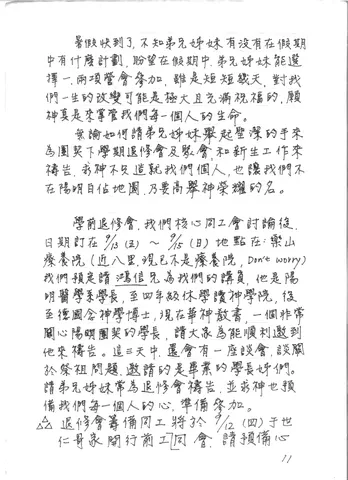 暑假快到了,不知弟兄姊妹有沒有在假期
中有什麼計劃,盼望在假期中,弟兄姊妹能選
擇一、兩項營會參加,雖是短短幾天,對我
們一生的改變可能是極大且充滿祝福的,願
神真是來掌管我們每一個人的生命。
無論如何請弟兄姊妹舉起聖潔的手來
為團契下學期退修會及聚會和新生工作來
禱告,求神不只造就我們個人,也讓我們不
在陽明白佔地圖,乃要高舉神榮耀的名。
學前退修會,我們核心同工會討論後,
日期訂在 9/13 (五) ~ 9/15 (日) 地點在:樂山
療養院 (近八里,現已不是療養院, Don't worry)
我們預定請鴻信兄為我們的講員,他是陽
明醫學系學長,至四年級休學讀神學院,後
至德國念神學博士,現在華神教書,一個非常
關心陽明團契的學長,請大家為能順利邀到
他來禱告。這三天中,還會有一座談會,談關
於祭祖問題,邀請的是畢業的學長姊們。
請弟兄姊妹常為退修會禱告,並求神也預
備我們每一個人的心,準備參加。
△ 退修會籌備同工將於 9/12 (四) 于世
仁哥家間行前工同會,請預備心
11